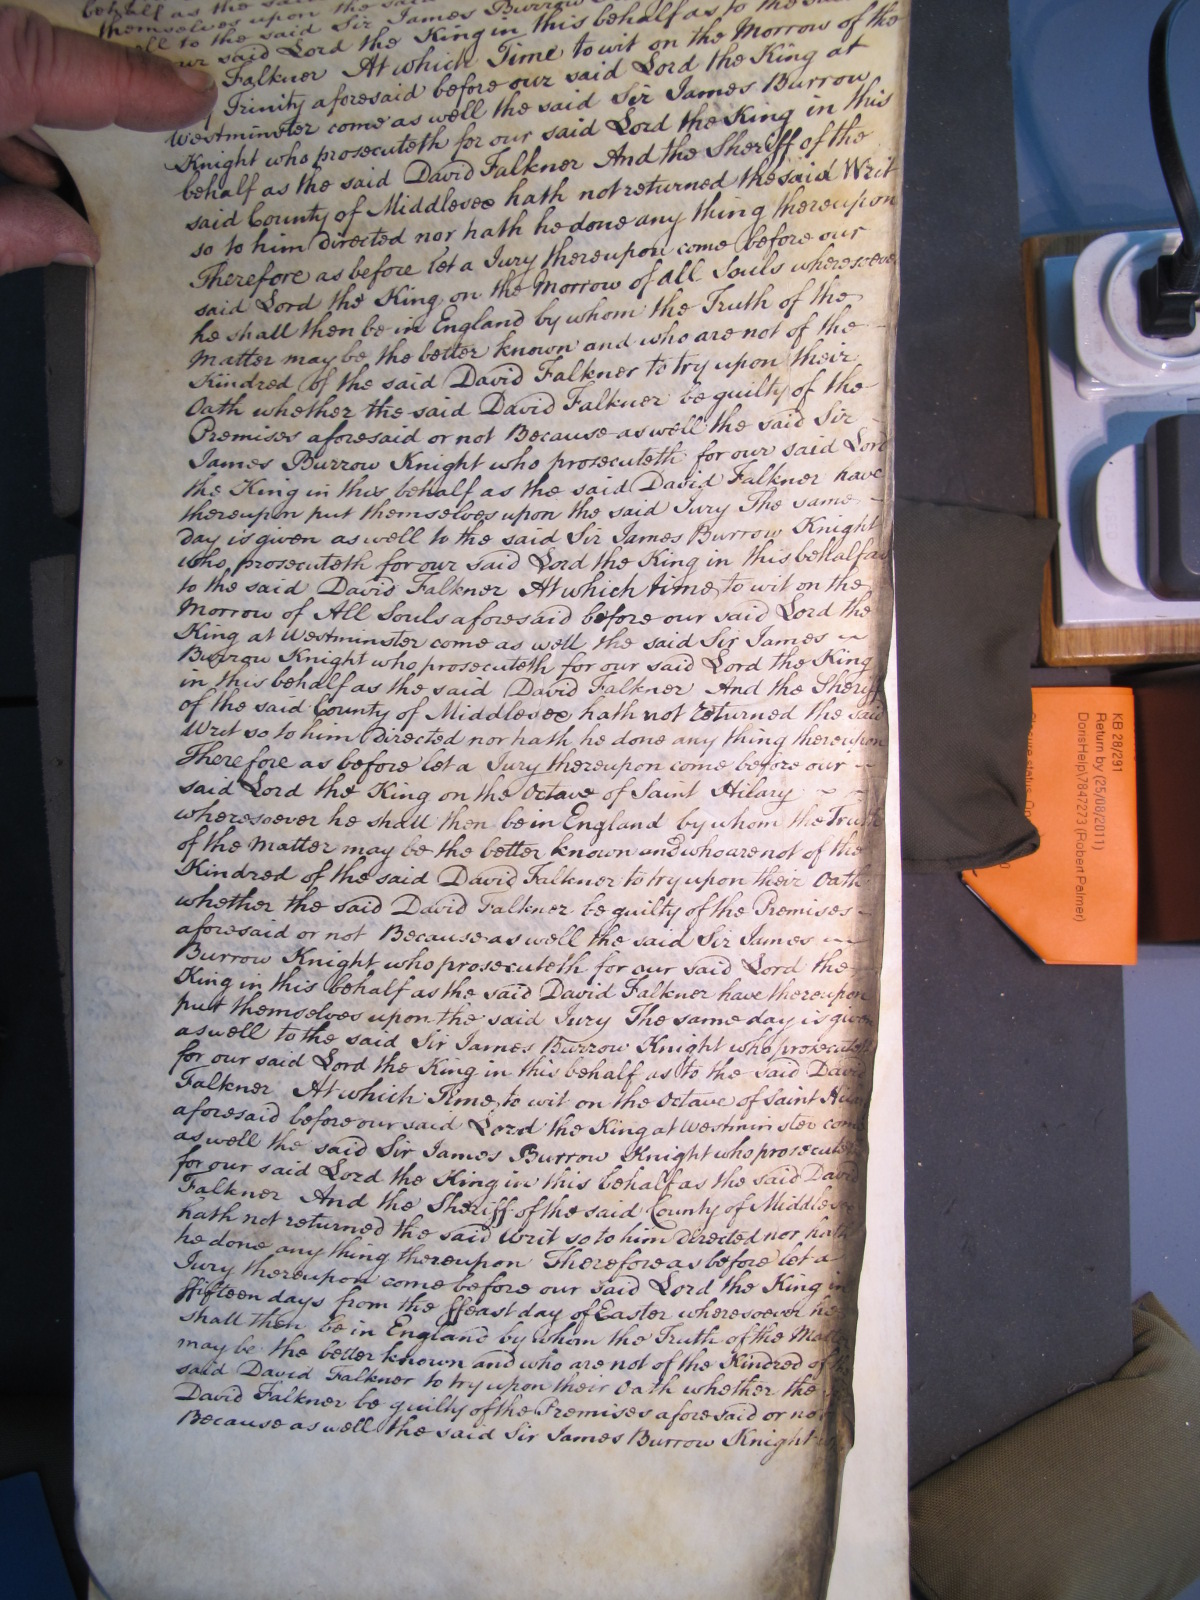 behalf as the said
themselves upon the said Sir James Burrow
well to the said Sir James Burrow
our said Lord the King in this behalf as to the said
Falkner At which Time to wit on the Morrow of the
Trinity aforesaid before our said Lord the King at
Westminster come as well the said Sir James Burrow
Knight who prosecuteth for our said Lord the King in this
behalf as the said David Falkner And the Sheriff of the
said County of Middlesex hath not returned the said Writ
so to him directed nor hath he done any thing thereupon
Therefore as before let a Jury thereupon come before our
said Lord the King on the Morrow of all Souls wheresoever
he shall then be in England by whom the Truth of the
Matter may be the better known and who are not of the
Kindred of the said David Falkner to try upon their
Oath whether the said David Falkner be guilty of the
Premises aforesaid or not Because as well the said Sir
James Burrow Knight who prosecuteth for our said Lord
the King in this behalf as the said David Falkner have
thereupon put themselves upon the said Jury The same
day is given as well to the said Sir James Burrow Knight
who prosecuteth for our said Lord the King in this behalf as
to the said David Falkner At which time to wit on the
Morrow of All Souls aforesaid before our said Lord the
King at Westminster come as well the said Sir James
Burrow Knight who prosecuteth for our said Lord the King
in this behalf as the said David Falkner And the Sheriff
of the said County of Middlesex hath not returned the said
Writ so to him directed nor hath he done any thing thereupon
Therefore as before let a Jury thereupon come before our
said Lord the King on the Octave of Saint Hilary
wheresoever he shall then be in England by whom the Truth
of the Matter may be the better known and who are not of the
Kindred of the said David Falkner to try upon their Oath
whether the said David Falkner be guilty of the Premises
aforesaid or not Because as well the said Sir James
Burrow Knight who prosecuteth for our said Lord the
King in this behalf as the said David Falkner have thereupon
put themselves upon the said Jury The same day is given
as well to the said Sir James Burrow Knight who prosecuteth
for our said Lord the King in this behalf as to the said David
Falkner At which Time to wit on the Octave of Saint Hilary
aforesaid before our said Lord the King at Westminster come
as well the said Sir James Burrow Knight who prosecuteth
for our said Lord the King in this behalf as the said David
Falkner And the Sheriff of the said County of Middlesex
hath not returned the said Writ so to him directed nor hath
he done any thing thereupon Therefore as before let a
Jury thereupon come before our said Lord the King in
ffifteen days from the ffeast day of Easter wheresoever he
shall then be in England by whom the Truth of the Matter
may be the better known and who are not of the Kindred of the
said David Falkner to try upon their Oath whether the
David Falkner be guilty of the Premises aforesaid or not
Because as well the said Sir James Burrow Knight
KB 28/291
Return by (25/08/2011)
DorisHelp\7847273 (Robert Palmer)